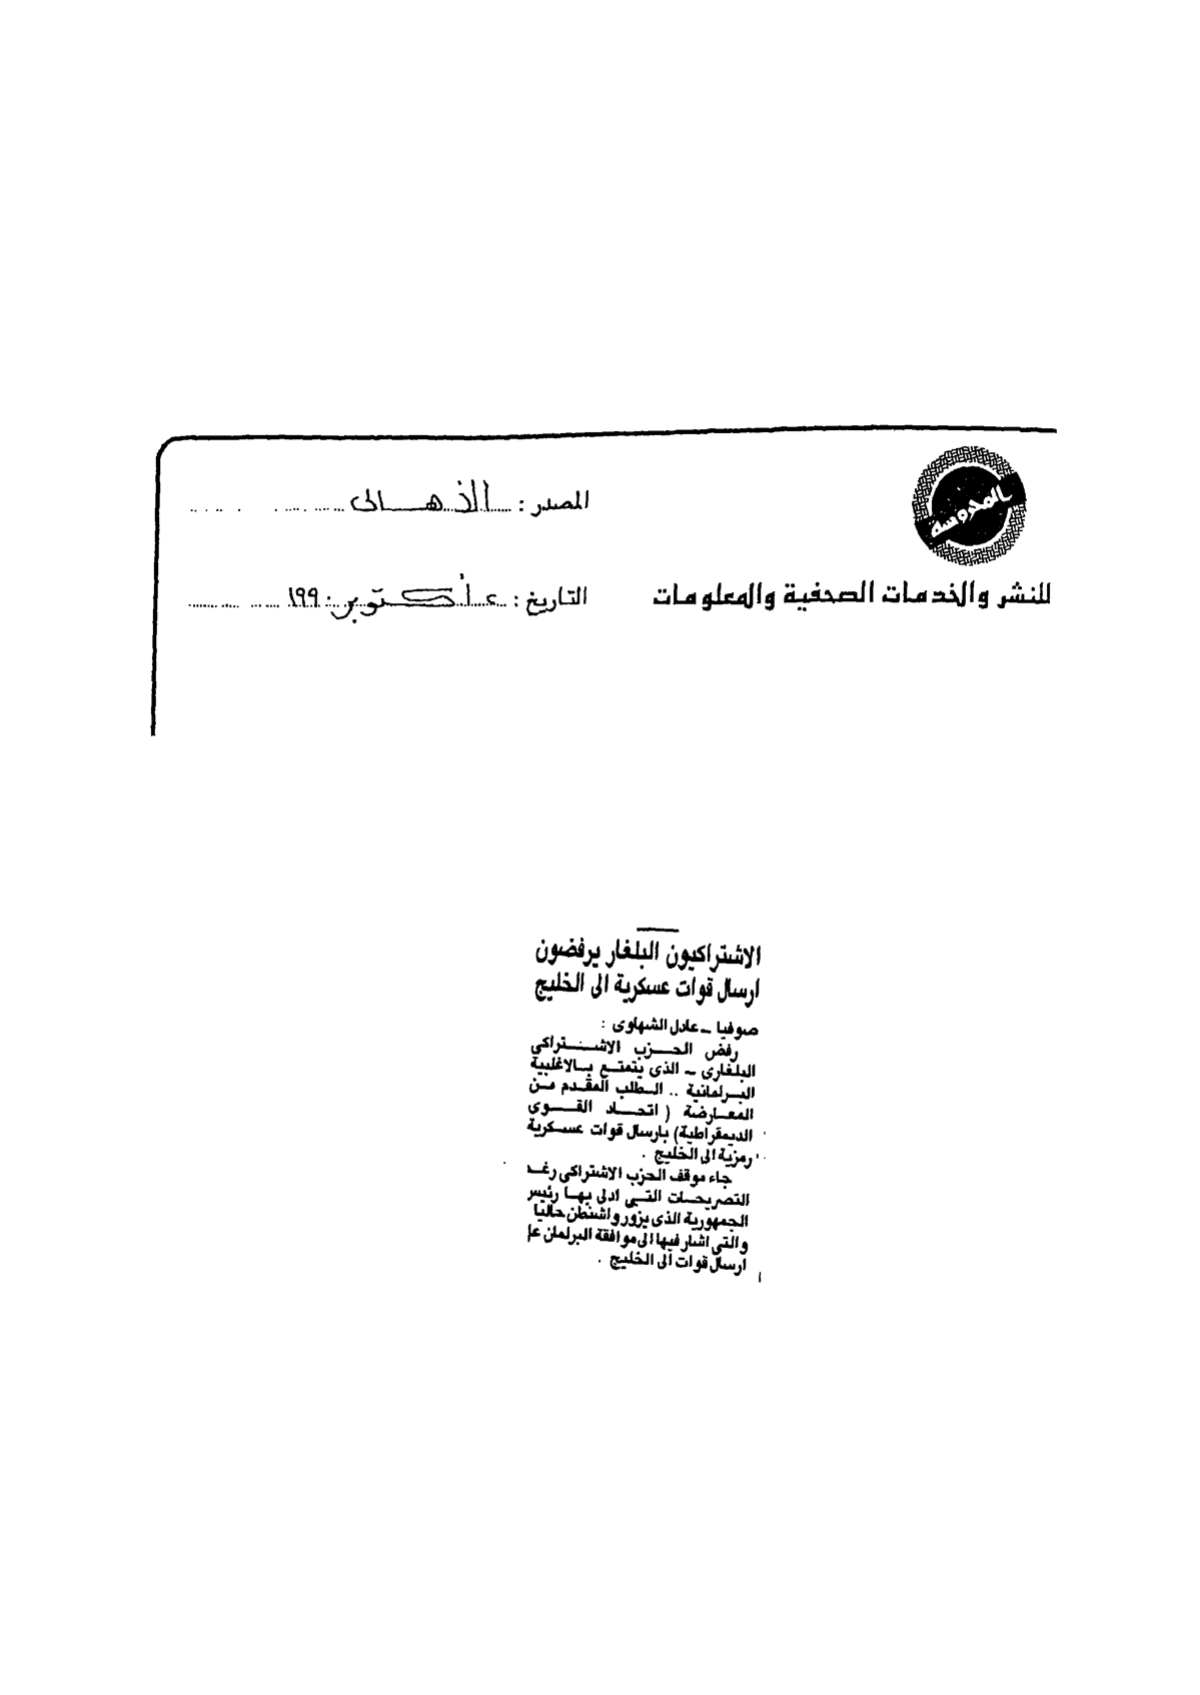 المحروسة
للنشر والخدمات الصحفية والمعلومات
المصدر : الأهالى
التاريخ : ٤ أكتوبر ١٩٩٠
الاشتراكيون البلغار يرفضون
ارسال قوات عسكرية الى الخليج
صوفيا ـ عادل الشهاوى :
رفض الحزب الاشتراكى
البلغارى ـ الذى يتمتع بالاغلبية
البرلمانية .. الطلب المقدم من
المعارضة ( اتحاد القوى
الديمقراطية) بارسال قوات عسكرية
رمزية الى الخليج .
جاء موقف الحزب الاشتراكى رغـ
التصريحات التى ادلى بها رئيس
الجمهورية الذى يزور واشنطن حاليا
والتى اشار فيها الى موافقة البرلمان عل
ارسال قوات الى الخليج .